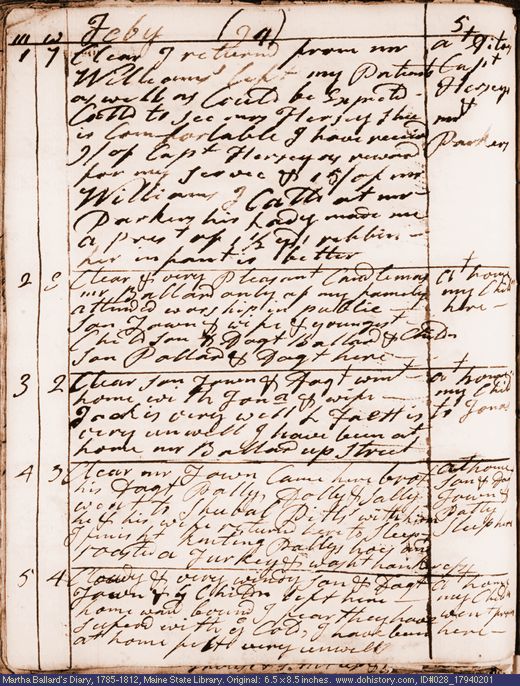 m w Feby (94) 5
1 7 Clear I returnd from mr
Williams left my Patients
as well as Could be Expectd
Calld to see mrs Hersey shee
is Comfortable I have receivd
of Capt Hersey as reward
for my Service & of mr
Williams I Calld at mr
Parkers his Lady made me
a prest of 1 1/2 yds ribbin
her infant is better
at
Capt
Herseys
mr
Parkers
2 Clear & very Pleasant Candlemas
mr Ballard only of my family
attend worship in publick
Son Town & wife & youngest
Child Son & Dagt Ballard & Childn
Son Pollard & Dagt here
at home
my Child
here
3 2 Clear Son Town & Dagt went
home with Jona & wife
Jack is very well &  is
very unwell I have been at
home mr Ballard up Street
at home
my Child
to Jona
4 3 Clear mr Town Came here brot
his Dagt Pattys Dolly & Sally
went to Shubal Pitts with him
he & his wife returnd here to Sleep
I finisht knitting Dollys
roasted a Turkey & washt
at home
Son & Dagt
Town &
Patty
Sleep here
5 4 Clowdy & very windy Son & Dagt
Town & Childn left here
home ward bound I fear they have
sufered with ye Cold, I have been
at home felt very unwell
at home
my Child
went from
here
Martha Ballard's Diary, 1785-1812, Maine State Library. Original: 6.5 x 8.5 inches. www.dohistory.com, ID#028_17940201